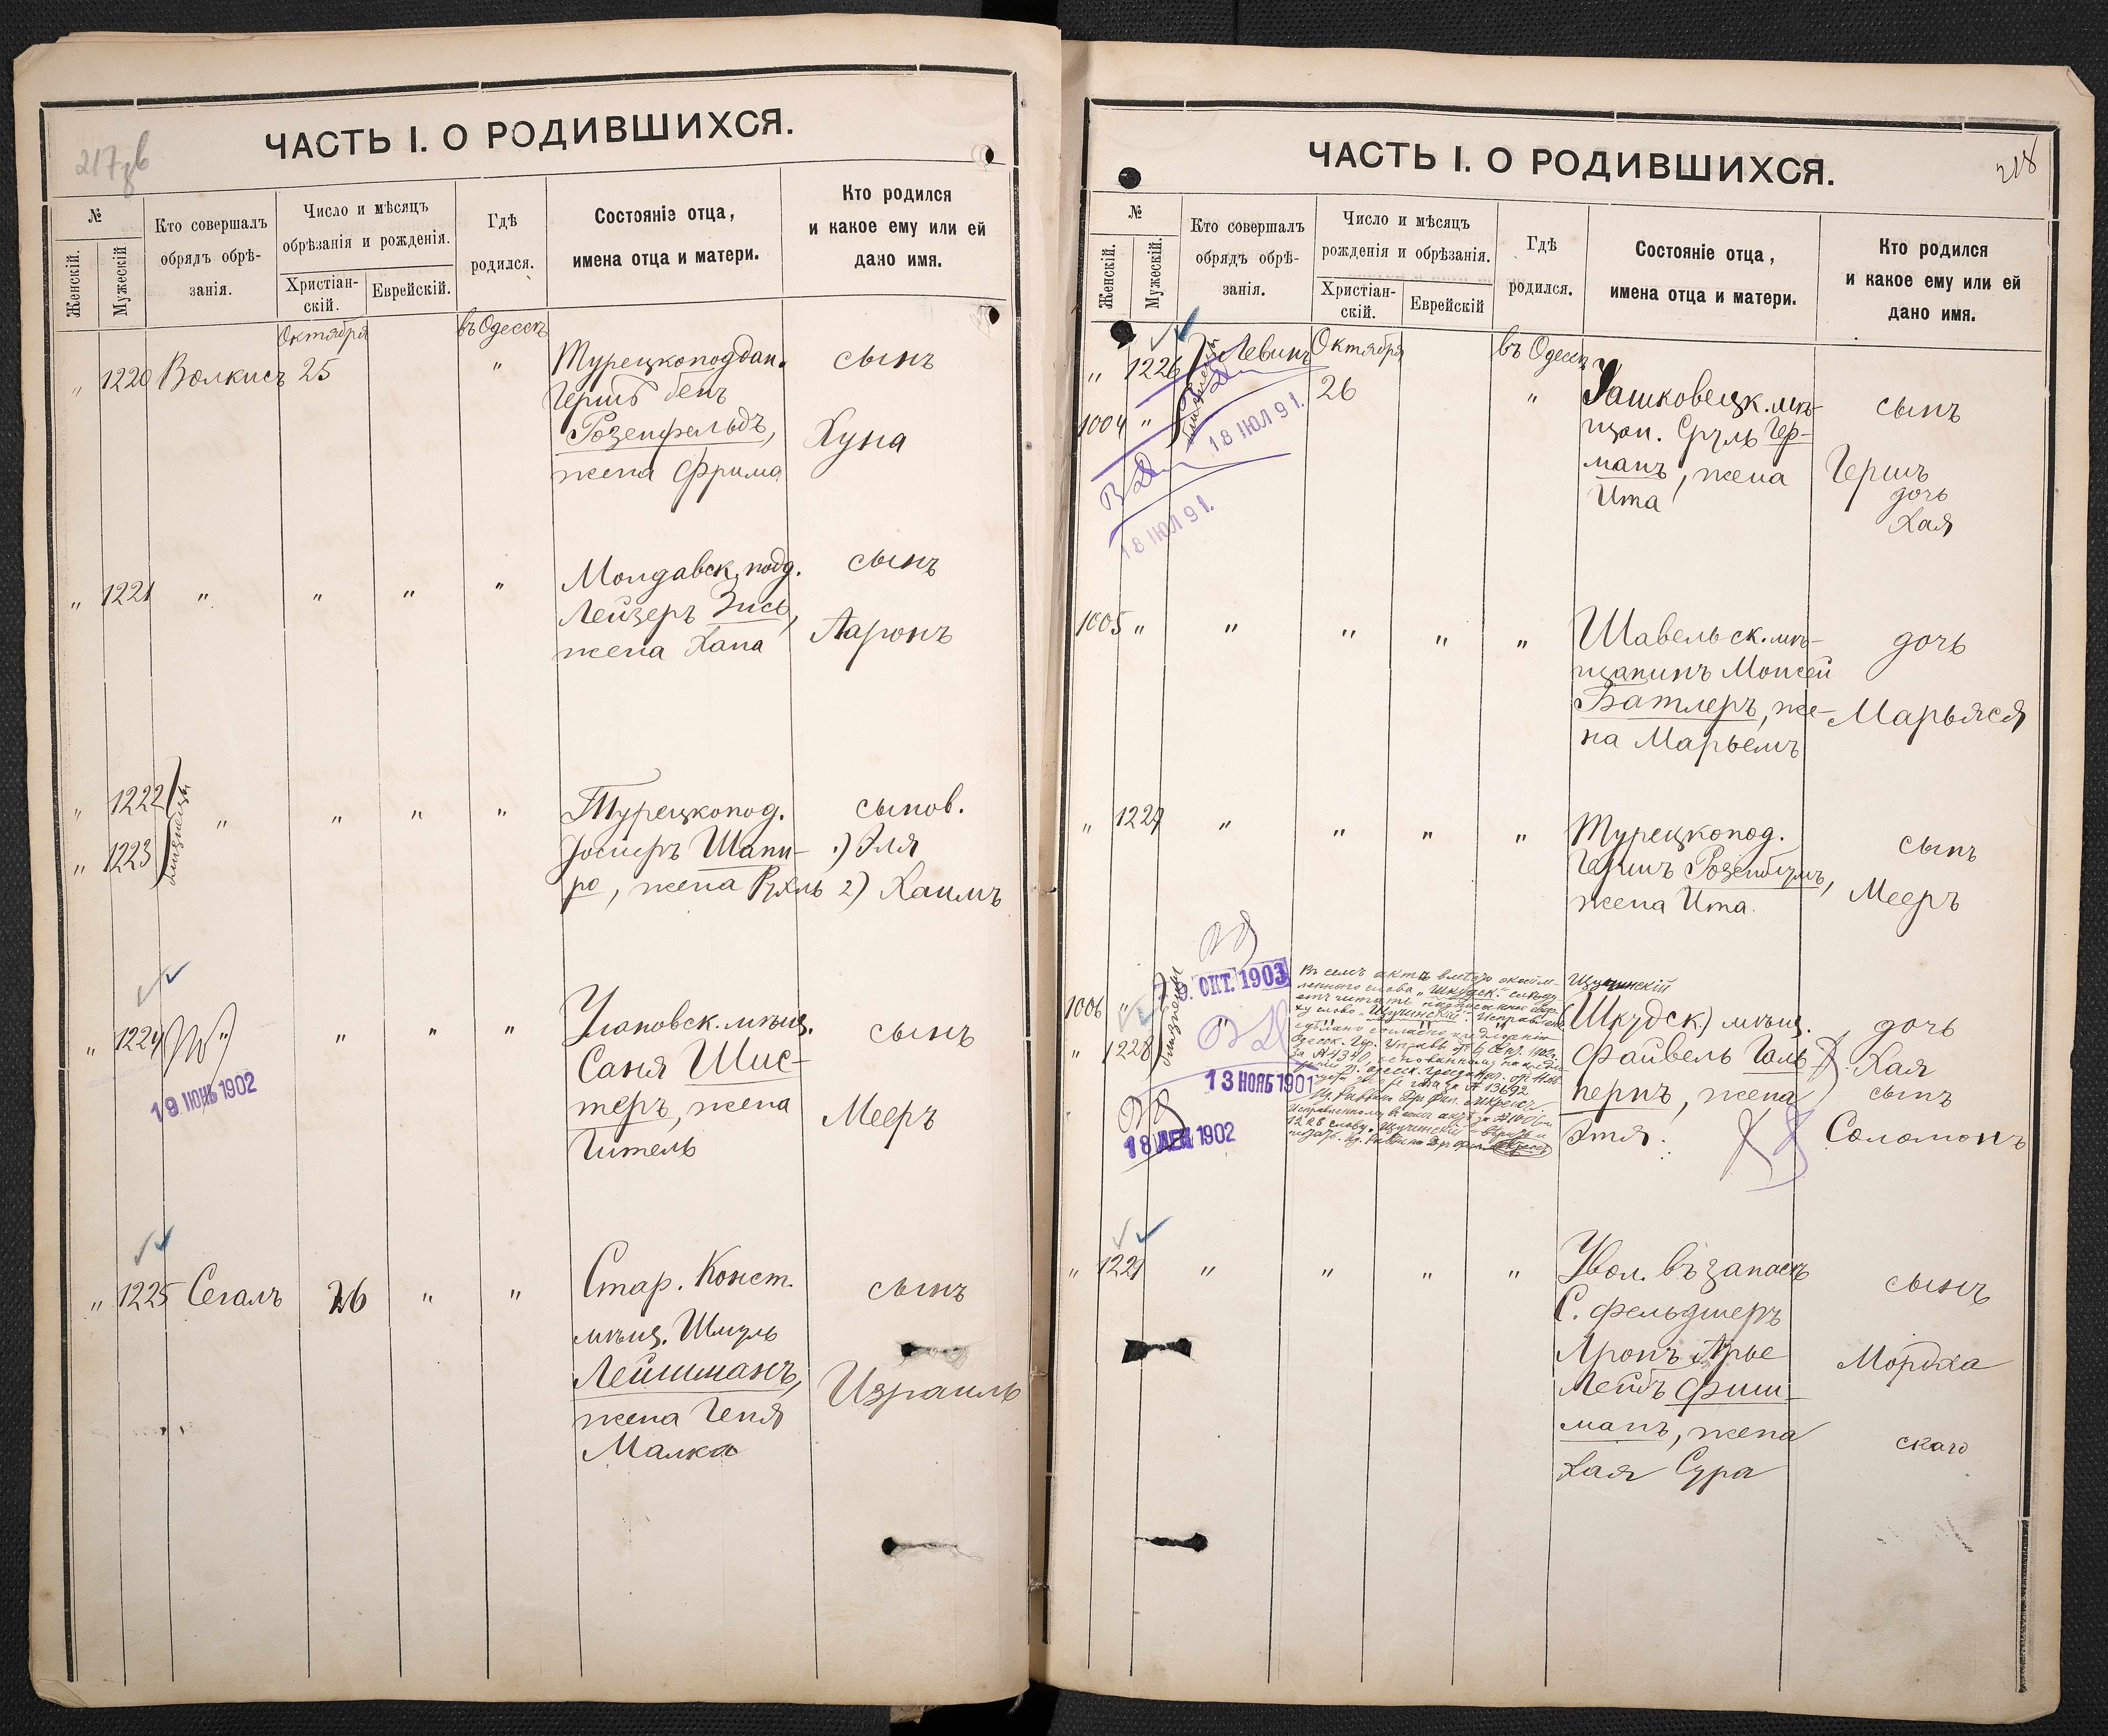 217об
ЧАСТЬ I. О РОДИВШИХСЯ.
№
Женскій.
Мужескій
Кто совершалъ
обрядъ обрѣ-
занія.
Число и мѣсяцъ
обрѣзанія и рожденія.
Христіан-
скій.
Еврейскій.
Гдѣ
родился.
Состояніе отца,
имена отца и матери.
Кто родился
и какое ему или ей
дано имя.
Октября
въ Одессѣ
" 1220 Волкисъ 25 "
Турецкоподдан.
Гершъ бенъ
Розенфельдъ,
жена Фрима
сынъ
Хуна
" 1221 " " " "
Молдавск. подд.
Лейзеръ Зись,
жена Хана
сынъ
Ааронъ
" 1222
" 1223
близнецы
" " " "
Турецкопод.
Іосифъ Шапи-
ро, жена Рухль
сынов.
1) Эля
2) Хаимъ
" 1224 " " " "
19 ІЮНЬ 1902
Улановск. мѣщ.
Саня Шис-
теръ, жена
Гитель
сынъ
Мееръ
" 1225 Сегалъ 26 " "
Стар. Конст.
мѣщ. Шмуль
Лейшманъ,
жена Геня
Малка
сынъ
Израиль
218
ЧАСТЬ I. О РОДИВШИХСЯ.
№
Женскій.
Мужескій.
Кто совершалъ
обрядъ обрѣ-
занія.
Число и мѣсяцъ
рожденія и обрѣзанія.
Христіан-
скій.
Еврейскій
Гдѣ
родился.
Состояніе отца,
имена отца и матери.
Кто родился
и какое ему или ей
дано имя.
" 1226
1004 "
близнецы
Левинъ
Октября
26
въ Одессѣ
"
18 ІЮЛ 91.
18 ІЮЛ 91.
Яшковецк. мѣ-
щан. Сруль Гер-
манъ, жена
Ита
сынъ
Гершъ
дочь
Хая
1005 " " " " "
Шавельск. мѣ-
щанинъ Моисей
Батлеръ, же-
на Марьемъ
дочь
Марьяся
" 1227 " " " "
Турецкопод.
Гершъ Розенблумъ,
жена Ита
сынъ
Мееръ
1006 "
" 1228
близнецы
ОКТ. 1903
13 НОЯБ 1901
18 ДЕК 1902
Въ семъ актѣ вмѣсто окайм-
леннаго слова "Шкудск." слѣду-
етъ читать надписанное сверху
слово "Щучинскій". Исправленіе
сдѣлано согласно
Щучинскій
(Шкудск.) мѣщ.
Файвель Галь-
пернъ, жена
Этя.
дочь
Хая
сынъ
Соломонъ
" 1229 " " " "
Увол. въ запасъ
С. фельдшеръ
Аронъ Арье
Лейбъ Фиш-
манъ, жена
Хая Сура
сынъ
Мордха
скаго